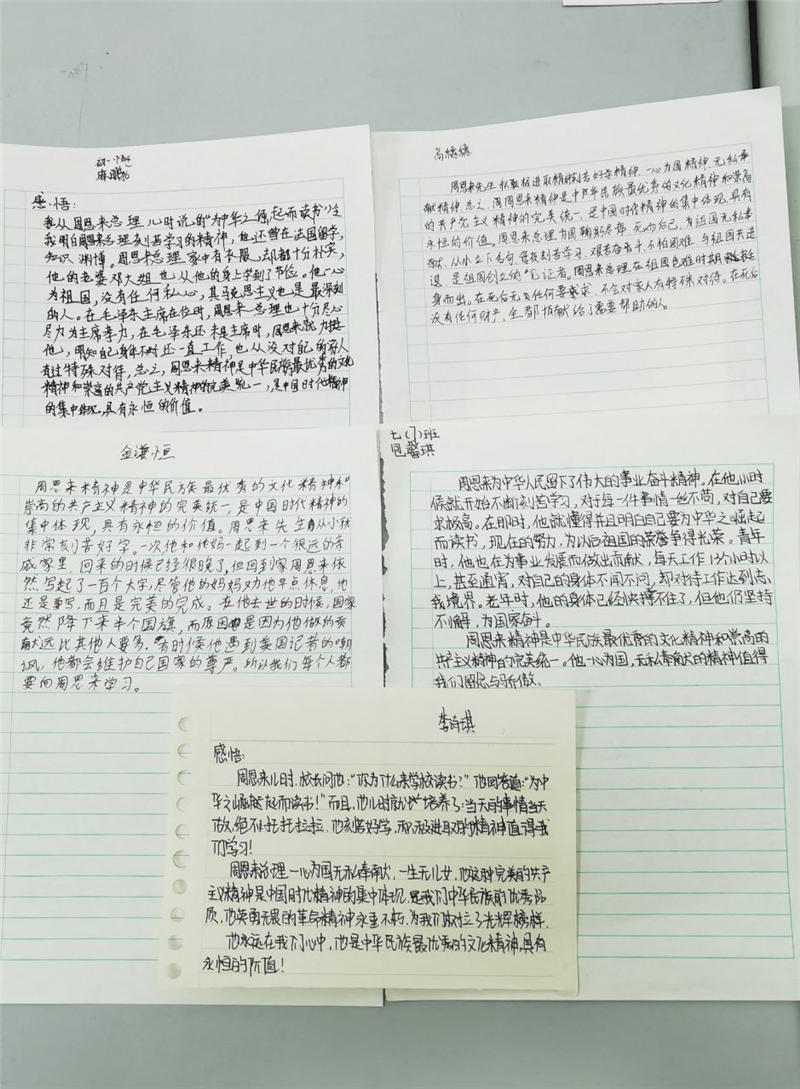 感悟:
我从周恩来总理儿时说的“为中华之崛起而读书”
我明白周恩来总理刻苦学习的精神,他还曾在法国留学,
知识渊博,周恩来总理家中有衣服却都十分朴实,
他的老婆邓大姐也从他的身上学到了节俭。他一心
为祖国,没有任何私心,其马克思主义也是最深刻
的人。在毛泽东主席在位时,周恩来总理也十分尽心
尽力为主席李力,在毛泽东还未是主席时,周恩来就力挺
他,明知自己身体不好还一直工作,也从没对自己的家人
有过特殊对待,总之,周恩来精神是中华民族最优秀的文化
精神和崇高的共产党主义精神的完美统一,是中国时代精神
的集中体现,具有永恒的价值。
高德德
周恩来先生积极进取精神刻苦好学精神,一心为国精神,无私奉
献精神。总之,周恩来精神是中华民族最优秀的文化精神和崇高
的共产党主义精神的完美统一,是中国时代精神的集中体现,具有
永恒的价值。周恩来总理为国鞠躬尽瘁,死而后已,为祖国无私奉
献,从小立下志向,坚持刻苦学习,艰苦奋斗,不怕困难,与祖国共进
退,是祖国创立的见证者。周恩来总理在祖国危难时期挺
身而出。在死后无任何要求,不会对家人有特殊对待。在死后
没有任何财产,全部捐献给了需要帮助的人。
金潇恒
周恩来精神是中华民族最优秀的文化精神和
崇高的共产主义精神的完美统一,是中国时代精神的
集中体现,具有永恒的价值。周恩来先生从小就
非常刻苦好学。一次他和他妈一起到一个很远的亲
戚家里,回来的时候已经很晚了,但回到家周恩来依
然写起了一百个大字,尽管他的妈妈劝他早点休息,他
还是要写,而且是完美的完成。在他去世的时候,国家
竟然降下来半个国旗,而原因也是因为他做的贡
献大远比其他人要多。有时候他遇到美国记者的嘲
讽,他都会维护自己国家的尊严。所以我们每个人都
要向周恩来学习。
七(7)班
包馨琪
周恩来为中华人民留下了伟大的事业奋斗精神。在他小时
候就开始不断刻苦学习,对于每一件事情一丝不苟,对自己要
求极高。在那时,他就懂得并且明白自己要为中华之崛起
而读书,现在的努力,为以后祖国的荣誉争得光荣。青年
时,他也在为事业发展而做出贡献,每天工作13个小时以
上,甚至通宵,对自己的身体不闻不问,却对待工作达到忘
我境界。老年时,他的身体已经快撑不住了,但他仍坚持
不懈,为国家奋斗。
周恩来精神是中华民族最优秀的文化精神和崇高的
共产主义精神的完美统一。他一心为国,无私奉献的精神值得
我们留念与骄傲。
李诗琪
感悟:
周恩来儿时,校长问他:“你为什么来学校读书?”他回答道:“为中
华之崛起而读书!”而且,他儿时就培养了:当天的事情当天
做,绝不托托拉拉,他刻苦好学,积极进取的精神值得我
们学习!
周恩来总理一心为国无私奉献,一生无儿女,他这种完美的共产
主义精神是中国时代精神的集中体现,是我们中华民族的优秀品
质,他英勇无畏的革命精神永垂不朽,为我们树立了光辉榜样
他永远在我们心中,他是中华民族最优秀的文化精神,具有
永恒的价值!